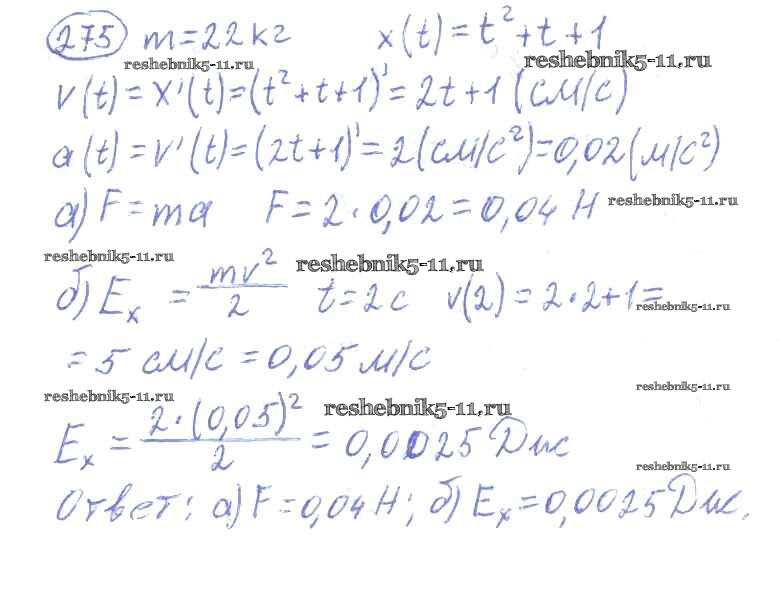 275 m=22кг x(t)=t²+t+1
reshebnik5-11.ru reshebnik5-11.ru
v(t)=x'(t)=(t²+t+1)'=2t+1 (см/с)
a(t)=v'(t)=(2t+1)'=2(см/с²)=0,02(м/с²)
а) F=ma F=2·0,02=0,04 Н reshebnik5-11.ru
reshebnik5-11.ru reshebnik5-11.ru
б) Eₓ = mv²/2 t=2c v(2)=2·2+1=
reshebnik5-11.ru
=5 см/с=0,05 м/с
reshebnik5-11.ru
reshebnik5-11.ru reshebnik5-11.ru
Eₓ = 2·(0,05)²/2 = 0,0025 Дж
reshebnik5-11.ru
Ответ: а) F=0,04 Н; б) Eₓ=0,0025 Дж.